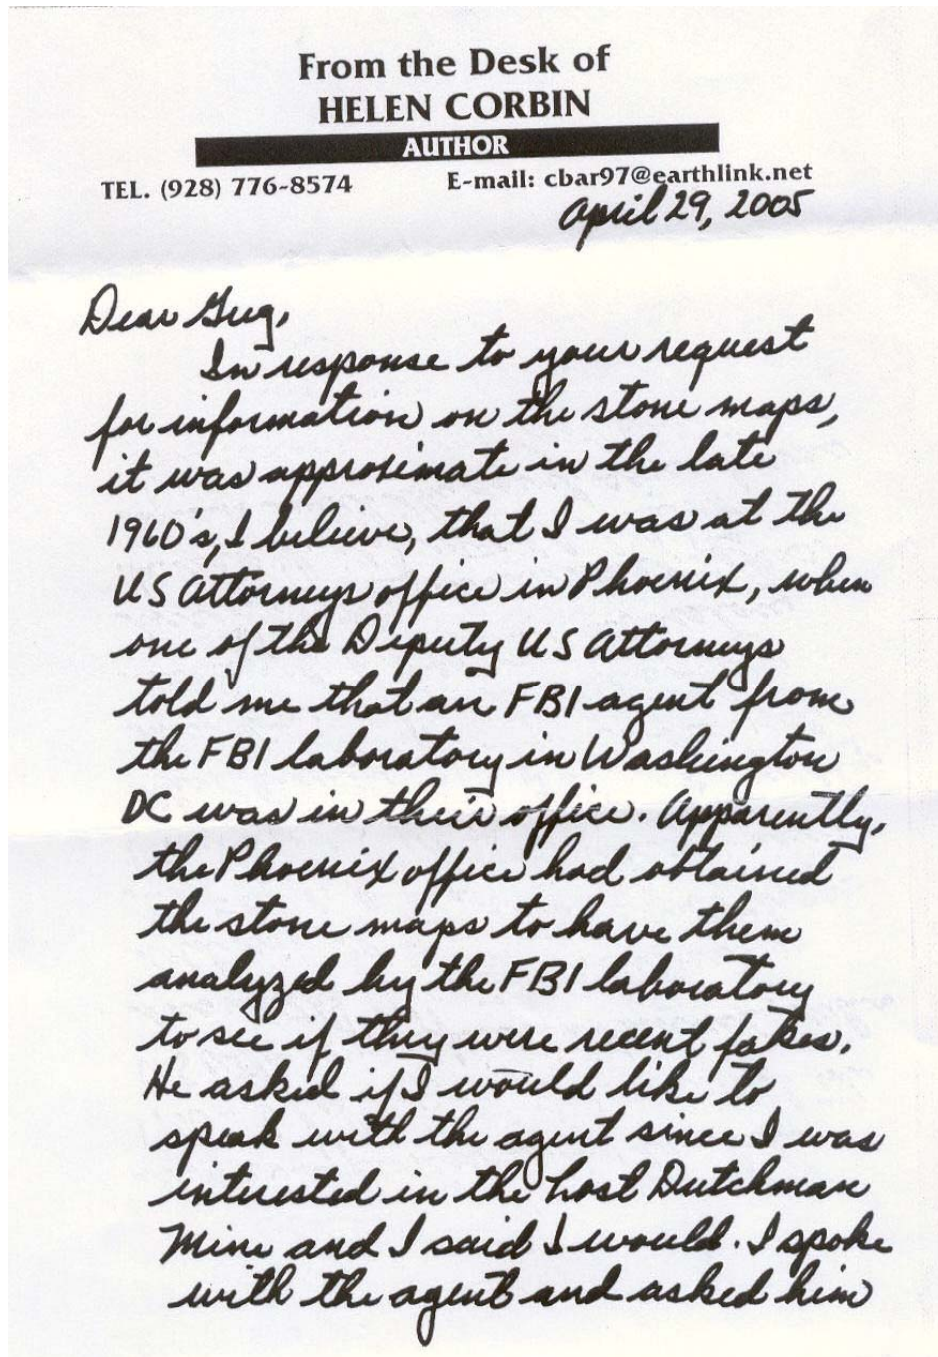 From the Desk of
HELEN CORBIN
AUTHOR
TEL. (928) 776-8574 E-mail: cbar97@earthlink.net
April 29, 2005
Dear Greg,
In response to your request
for information on the stone maps,
it was approximate in the late
1960's, I believe, that I was at the
US Attorneys office in Phoenix, when
one of the Deputy US Attorneys
told me that an FBI agent from
the FBI laboratory in Washington
DC was in their office. Apparently,
the Phoenix office had obtained
the stone maps to have them
analyzed by the FBI laboratory
to see if they were recent fakes.
He asked if I would like to
speak with the agent since I was
interested in the Lost Dutchman
Mine and I said I would. I spoke
with the agent and asked him